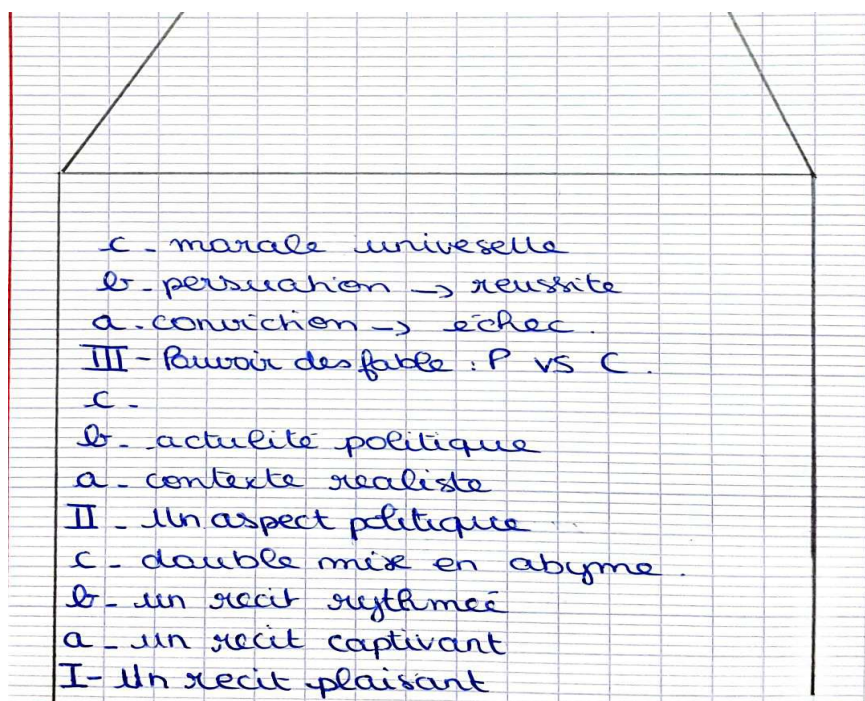 c - morale univeselle
b - persuation -> reussite
a - conviction -> echec.
III - Pouvoir des fable : P vs C.
c -
b - actulité politique
a - contexte realiste
II - Un aspect politique
c - double mise en abyme.
b - un recit rythmeé
a - un recit captivant
I - Un recit plaisant